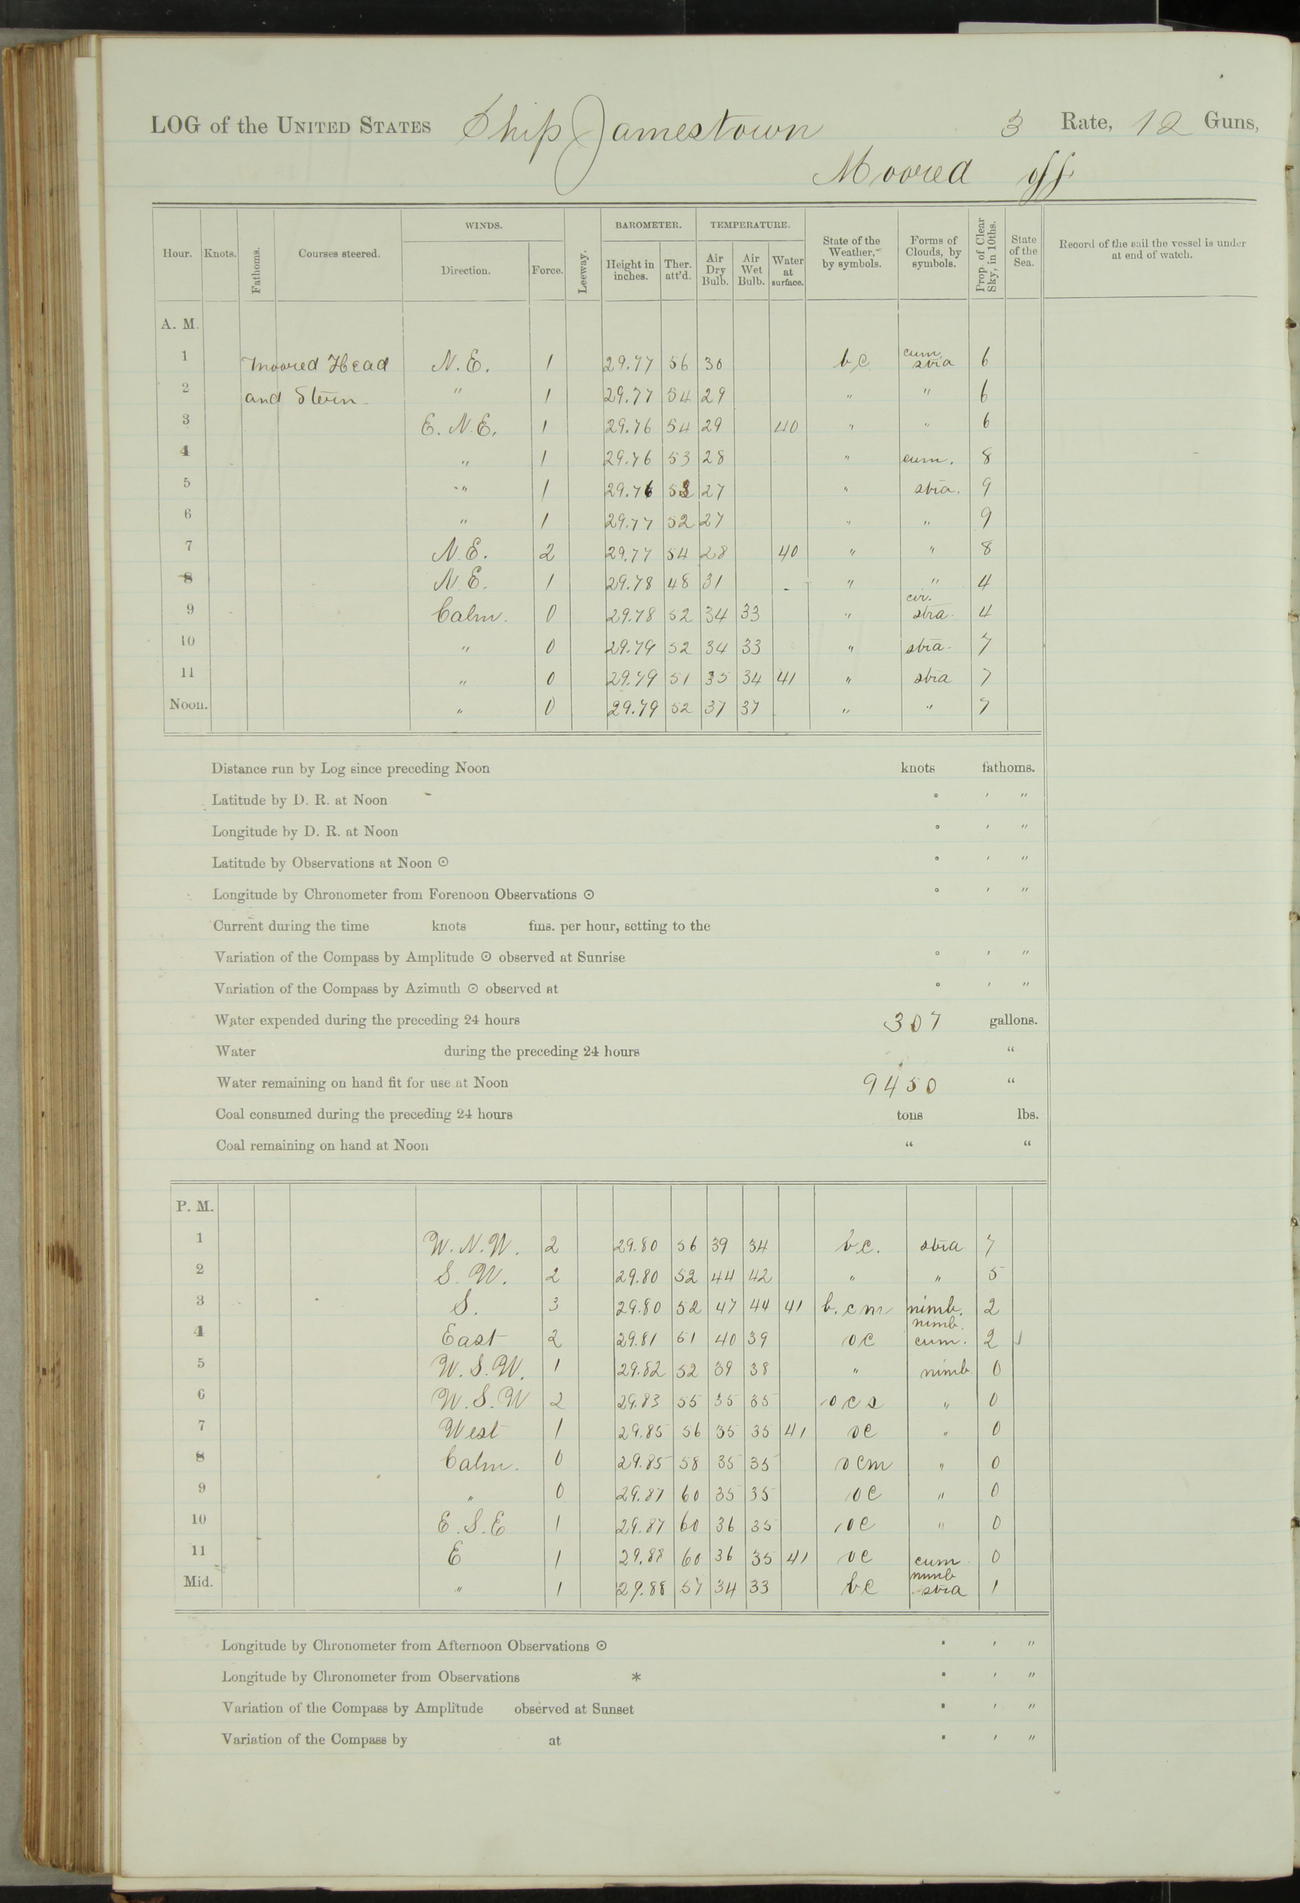 LOG of the UNITED STATES Ship Jamestown 3 Rate, 12 Guns,
Moored off
Hour. Knots. Fathoms. Courses steered. WINDS. Direction. Force. Leeway. BAROMETER. Height in inches. Ther. att'd. TEMPERATURE. Air Dry Bulb. Air Wet Bulb. Water at surface. State of the Weather, by symbols. Forms of Clouds, by symbols. Prop. of Clear Sky, in 10ths. State of the Sea. Record of the sail the vessel is under at end of watch.
A. M.
1 Moored Head N.E. 1 29.77 56 30 bc cum. stra 6
2 and Stern " 1 29.77 54 29 " " 6
3 E.N.E. 1 29.76 54 29 40 " " 6
4 " 1 29.76 53 28 " cum. 8
5 " 1 29.76 53 27 " stra. 9
6 " 1 29.77 52 27 " " 9
7 N.E. 2 29.77 54 28 40 " " 8
8 N.E. 1 29.78 48 31 - " " 4
9 Calm. 0 29.78 52 34 33 " cir. stra. 4
10 " 0 29.79 52 34 33 " stra. 7
11 " 0 29.79 51 35 34 41 " stra 7
Noon. " 0 29.79 52 37 37 " " 7
Distance run by Log since preceding Noon knots fathoms.
Latitude by D. R. at Noon ° ′ ″
Longitude by D. R. at Noon ° ′ ″
Latitude by Observations at Noon ⊙ ° ′ ″
Longitude by Chronometer from Forenoon Observations ⊙ ° ′ ″
Current during the time knots fms. per hour, setting to the
Variation of the Compass by Amplitude ⊙ observed at Sunrise ° ′ ″
Variation of the Compass by Azimuth ⊙ observed at ° ′ ″
Water expended during the preceding 24 hours 307 gallons.
Water during the preceding 24 hours “
Water remaining on hand fit for use at Noon 9450 “
Coal consumed during the preceding 24 hours tons lbs.
Coal remaining on hand at Noon “ “
P. M.
1 W.N.W. 2 29.80 56 39 34 bc. stra 7
2 S.W. 2 29.80 52 44 42 " " 5
3 S. 3 29.80 52 47 44 41 b.cm nimb. 2
4 East 2 29.81 51 40 39 oc nimb. cum. 2
5 W.S.W. 1 29.82 52 39 38 " nimb. 0
6 W.S.W 2 29.83 55 35 35 ocs " 0
7 West 1 29.85 56 35 35 41 oc " 0
8 Calm. 0 29.85 58 35 35 ocm " 0
9 " 0 29.87 60 35 35 oc " 0
10 E.S.E 1 29.87 60 36 35 oc " 0
11 E 1 29.88 60 36 35 41 oc cum. 0
Mid. " 1 29.88 57 34 33 bc nimb stra 1
Longitude by Chronometer from Afternoon Observations ⊙ ° ′ ″
Longitude by Chronometer from Observations * ° ′ ″
Variation of the Compass by Amplitude observed at Sunset ° ′ ″
Variation of the Compass by at ° ′ ″